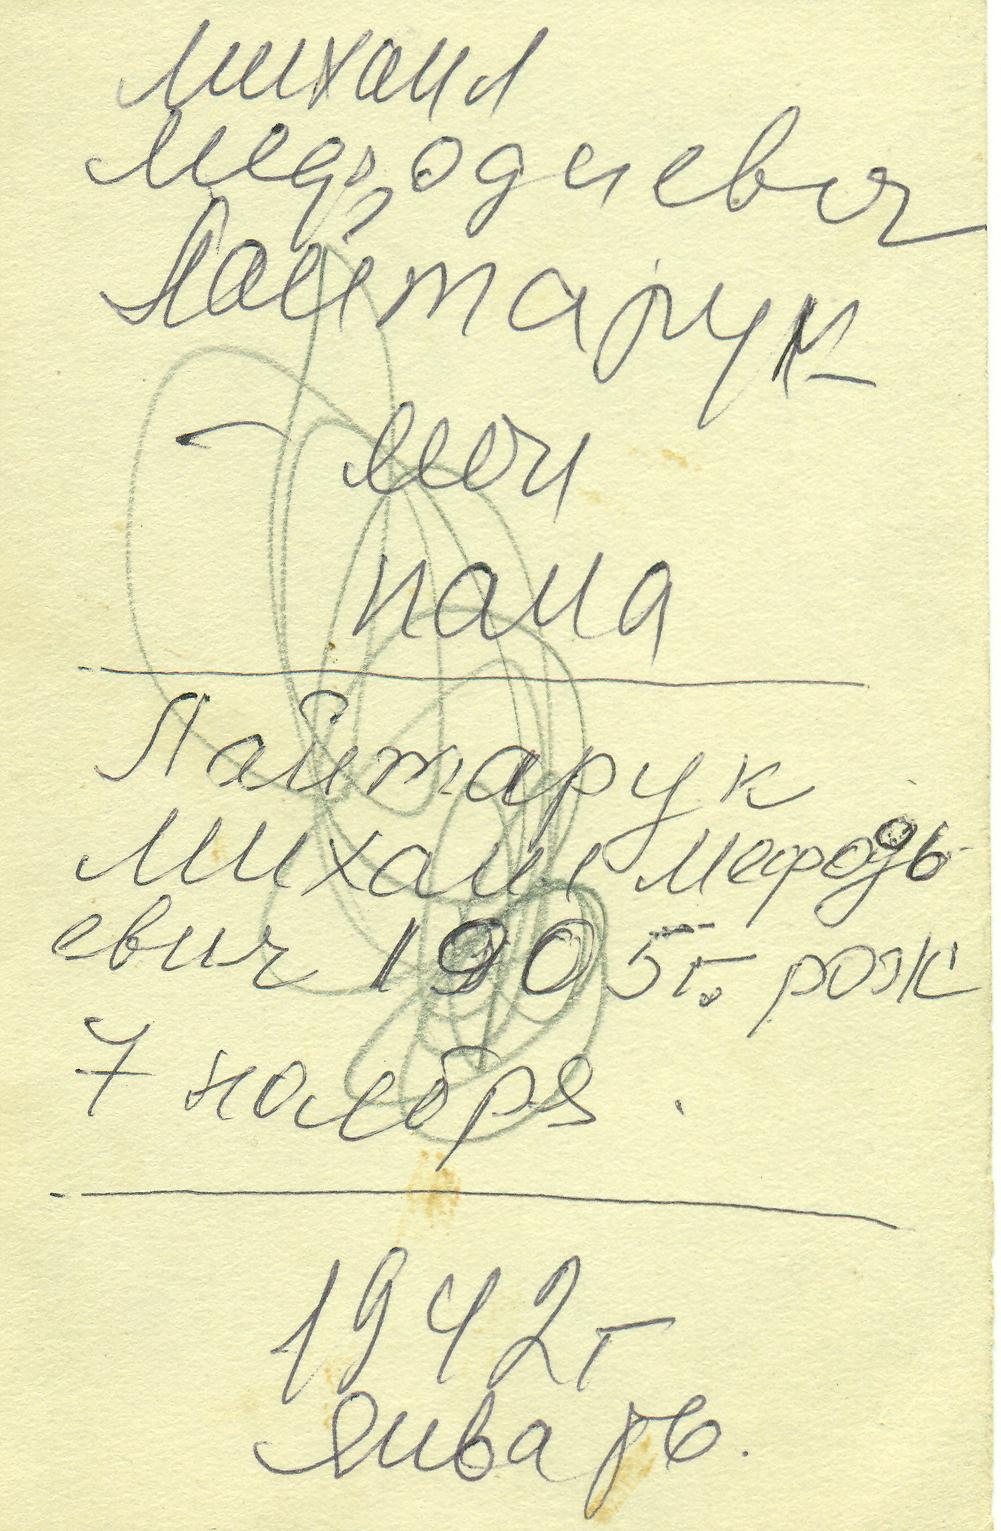 Михаил
Мефодиевич
Лайтарук
— мой
папа
Лайтарук
Михаил Мефодь
евич 1905г. рож
7 ноября.
1942г
Январь.